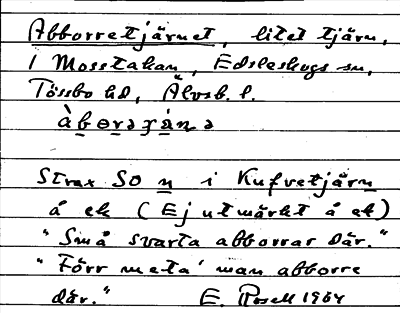 Abborretjärnet, litet tjärn,
i Mosstakan, Edsleskogs sn,
Tössbo hd, Älvsb. l.
Strax SO n i Kufvetjärn
å ek (Ej utmärkt å ek)
"Små svarta abborrar där."
"Förr meta' man abborre
där." E. Rosell 1964